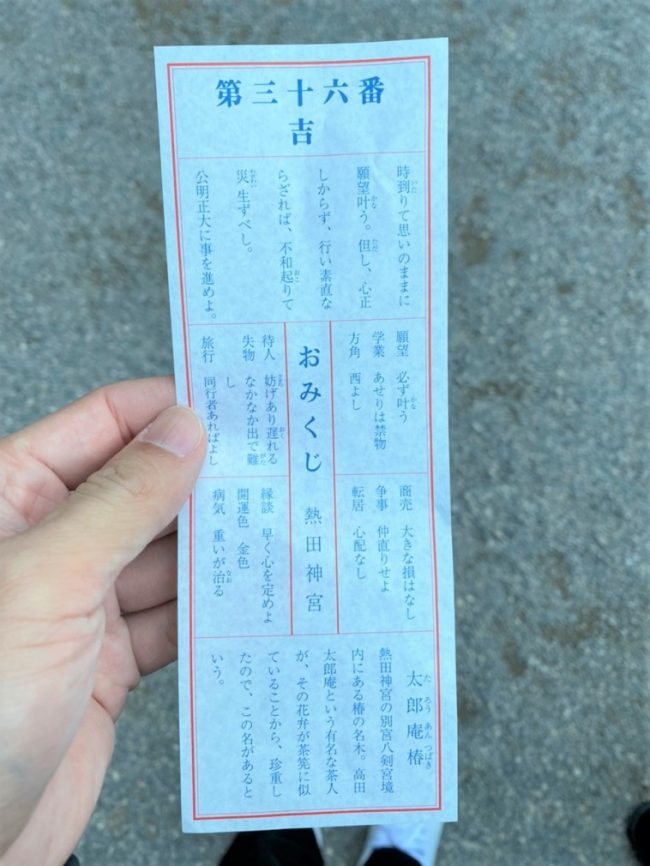 第三十六番
吉
時到りて思いのままに
願望叶う。但し、心正
しからず、行い素直な
らざれば、不和起りて
災生ずべし。
公明正大に事を進めよ。
願望 必ず叶う
学業 あせりは禁物
方角 西よし
商売 大きな損はなし
争事 仲直りせよ
転居 心配なし
おみくじ 熱田神宮
待人 妨げあり遅れる
失物 なかなか出で難
し
旅行 同行者あればよし
縁談 早く心を定めよ
開運色 金色
病気 重いが治る
太郎庵椿
熱田神宮の別宮八剣宮境
内にある椿の名木。高田
太郎庵という有名な茶人
が、その花弁が茶筅に似
ていることから、珍重し
たので、この名があると
いう。